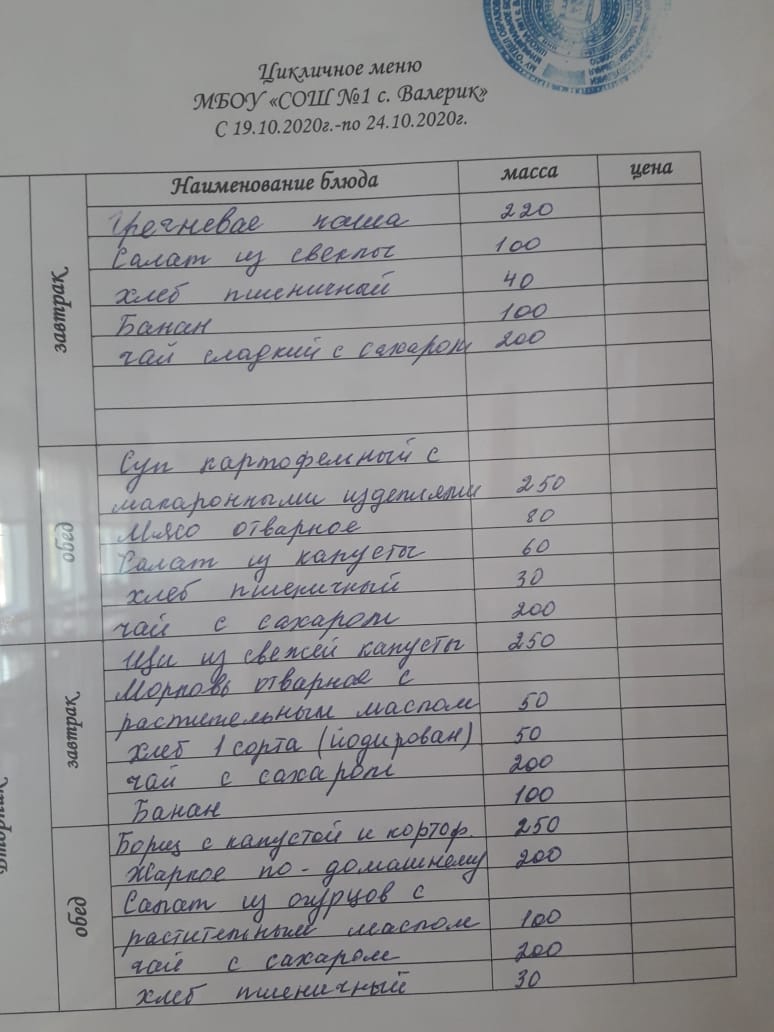 Цикличное меню
МБОУ «СОШ №1 с. Валерик»
С 19.10.2020г.-по 24.10.2020г.
Наименование блюда масса цена
завтрак
Гречневае каша 220
Салат из свеклы 100
хлеб пшеничный 40
Банан 100
чай сладкий с сахаром 200
обед
Суп картофельный с
макаронными изделиями 250
Мясо отварное 80
Салат из капусты 60
хлеб пшеничный 30
чай с сахаром 200
Вторник
завтрак
Щи из свежей капусты 250
Морковь отварное с
растительным маслом 50
хлеб 1 сорта (йодирован) 50
чай с сахаром 200
Банан 100
обед
Борщ с капустой и кортоф. 250
Жаркое по-домашнему 200
Салат из огурцов с
растительным маслом 100
чай с сахаром 200
хлеб пшеничный 30